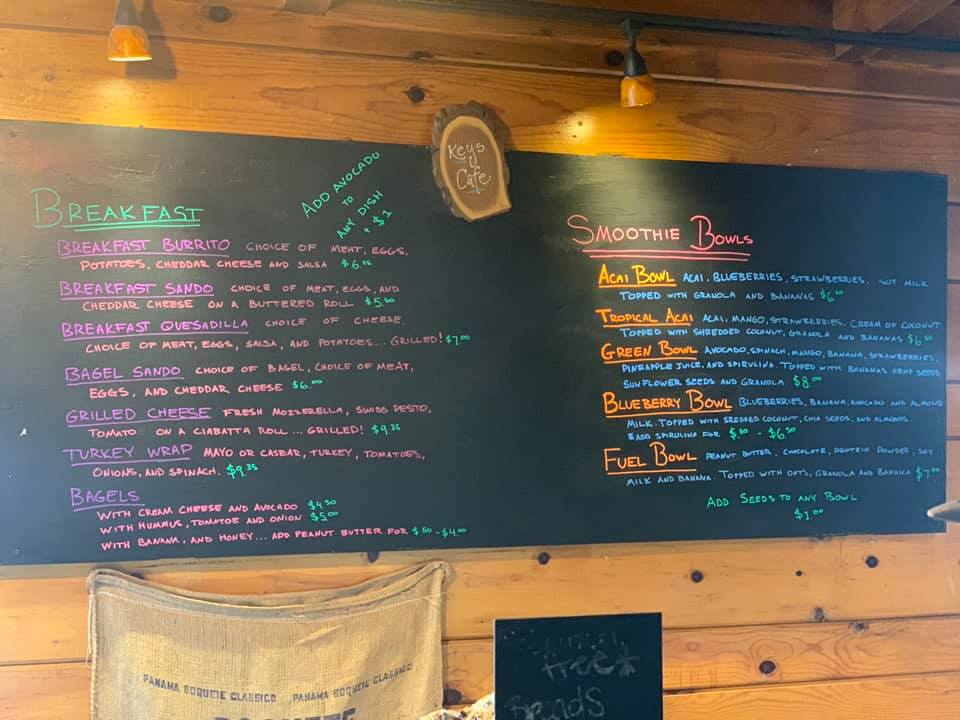 Keys
Cafe
BREAKFAST
ADD AVOCADO
TO
ANY DISH
+ $1
BREAKFAST BURRITO CHOICE OF MEAT, EGGS,
POTATOES, CHEDDAR CHEESE AND SALSA
BREAKFAST SANDO CHOICE OF MEAT, EGGS, AND
CHEDDAR CHEESE ON A BUTTERED ROLL $5.50
BREAKFAST QUESADILLA CHOICE OF CHEESE,
CHOICE OF MEAT, EGGS, SALSA, AND POTATOES... GRILLED! $7.00
BAGEL SANDO CHOICE OF BAGEL, CHOICE OF MEAT,
EGGS, AND CHEDDAR CHEESE $6.00
GRILLED CHEESE FRESH MOZZERELLA, SWISS PESTO,
TOMATO ON A CIABATTA ROLL... GRILLED! $9.35
TURKEY WRAP MAYO OR CAESAR, TURKEY, TOMATOES,
ONIONS, AND SPINACH. $9.35
BAGELS
WITH CREAM CHEESE AND AVOCADO $4.50
WITH HUMMUS, TOMATOE AND ONION $5.00
WITH BANANA, AND HONEY... ADD PEANUT BUTTER FOR $.50 - $4.00
SMOOTHIE BOWLS
ACAI BOWL ACAI, BLUEBERRIES, STRAWBERRIES, SOY MILK
TOPPED WITH GRANOLA AND BANANAS $6.00
TROPICAL ACAI ACAI, MANGO, STRAWBERRIES, CREAM OF COCONUT
TOPPED WITH SHREDDED COCONUT, GRANOLA AND BANANAS $6.50
GREEN BOWL AVOCADO, SPINACH, MANGO, BANANA, STRAWBERRIES,
PINEAPPLE JUICE, AND SPIRULINA. TOPPED WITH BANANAS HEMP SEEDS
SUNFLOWER SEEDS AND GRANOLA $8.00
BLUEBERRY BOWL BLUEBERRIES, BANANA, AVOCADO AND ALMOND
MILK. TOPPED WITH SREDDED COCONUT, CHIA SEEDS, AND ALMONDS.
ADD SPIRULINA FOR $.50 - $6.50
FUEL BOWL PEANUT BUTTER, CHOCOLATE, PROTEIN POWDER, SOY
MILK AND BANANA. TOPPED WITH OATS, GRANOLA AND BANANA $7.00
ADD SEEDS TO ANY BOWL
$1.00
PANAMA BOQUETE CLASSICO PANAMA BOQUETE CLASSICO
free